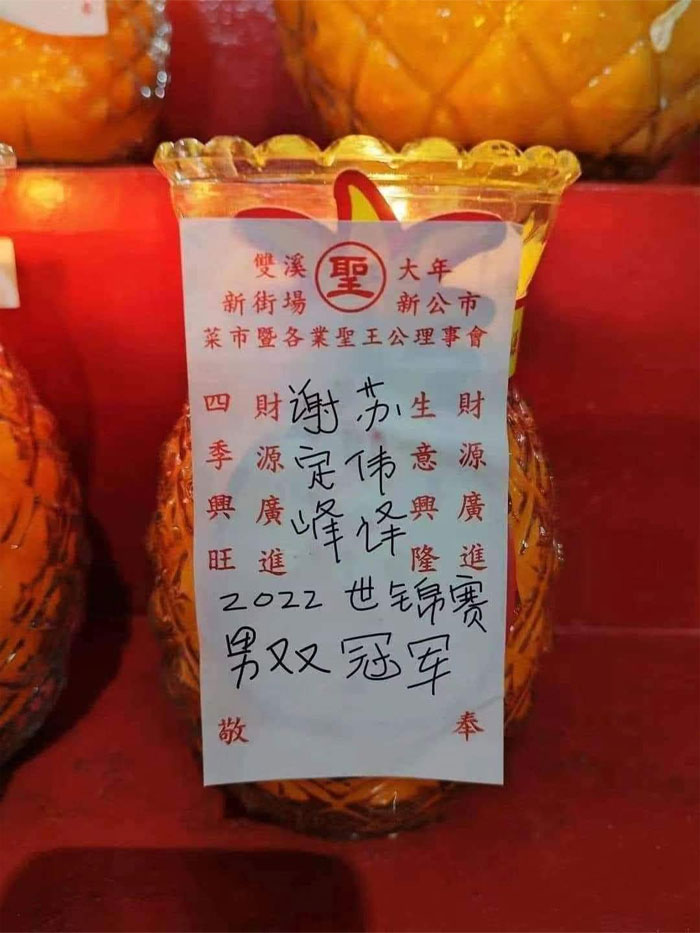 雙溪 聖 大年
新街場 新公市
菜市暨各業聖王公理事會
財源廣進
生意興隆
苏伟译
谢定峰
財源廣進
四季興旺
2022 世锦赛
男双冠军
敬奉